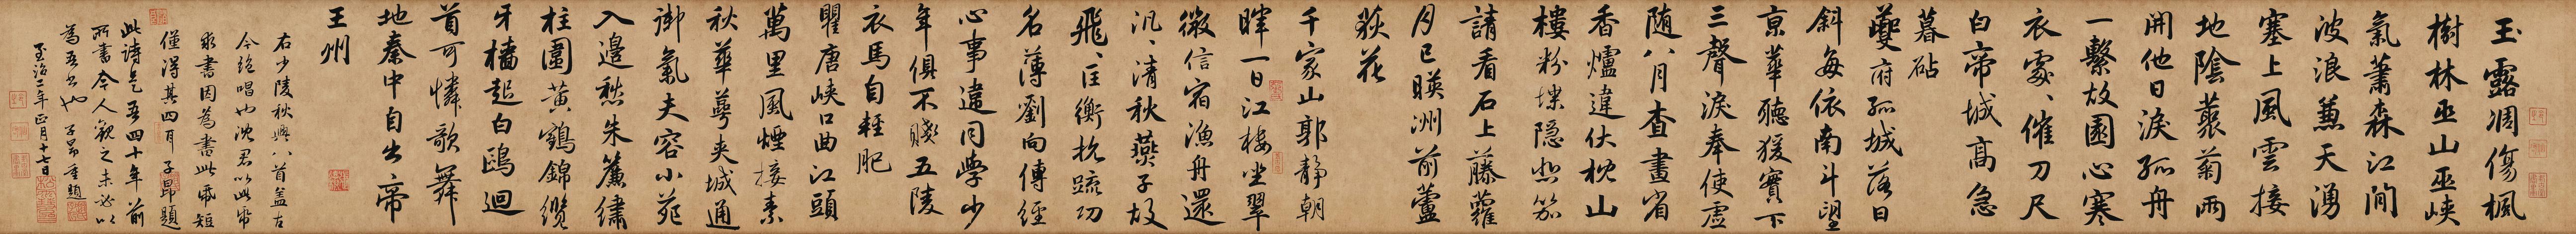 玉露凋傷楓
樹林巫山巫峽
氣蕭森江間
波浪兼天湧
塞上風雲接
地陰藂菊兩
開他日淚孤舟
一繫故園心寒
衣處〻催刀尺
白帝城高急
暮砧
夔府孤城落日
斜每依南斗望
京華聽猨實下
三聲淚奉使虛
随八月查畫省
香爐違伏枕山
樓粉堞隠悲笳
請看石上藤蘿
月已暎洲前蘆
荻花
千家山郭靜朝
暉一日江樓坐翠
微信宿漁舟還
汎〻清秋燕子故
飛〻匡衡抗疏功
名薄劉向傳經
心事違同學少
年俱不賤五陵
衣馬自輕肥
瞿唐峽口曲江頭
萬里風煙接素
秋華萼夾城通
御氣夫容小苑
入邊愁朱簾繡
柱圍黃鶴錦纜
牙檣起白鷗迴
首可憐歌舞
地秦中自古帝
王州
右少陵秋興八首蓋古
今絕唱也沈君以此紙
求書因為書此紙短
僅得其四耳 子昂題
此詩是吾四十年前
所書今人觀之未必以
為吾書也 子昂重題
至治二年正月十七日